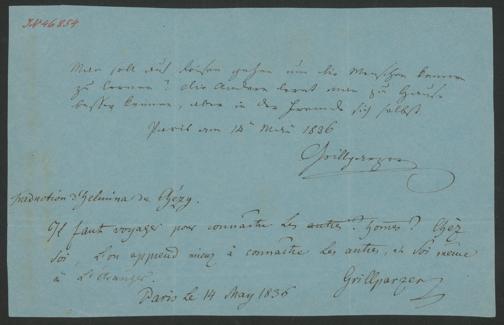 IN 46854
Man soll auf Reisen gehen um die Menschen kennen
zu lernen? Die Andern lernt man zu Hause
besser kennen, aber in der Fremde sich selbst.
Paris am 14 Mai 1836
Grillparzer
traduction d'Helmina de Chézy.
Il faut voyager pour connaître les autres? hommes? Chez
soi, l'on apprend mieux à connaître les autres, et soi même
à l'étranger.
Grillparzer
Paris le 14 May 1836